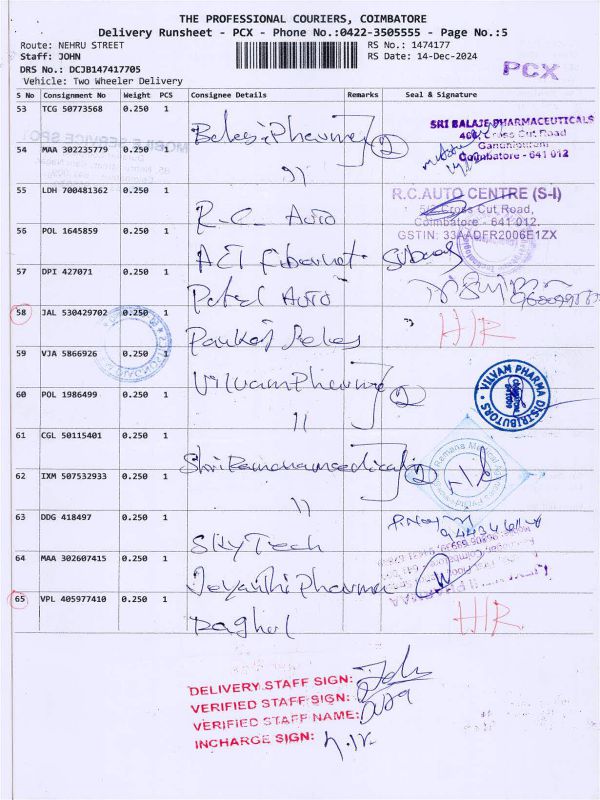 THE PROFESSIONAL COURIERS, COIMBATORE
Delivery Runsheet - PCX - Phone No.:0422-3505555 - Page No.:5
Route: NEHRU STREET RS No.: 1474177
Staff: JOHN RS Date: 14-Dec-2024
DRS No.: DCJB147417705
Vehicle: Two Wheeler Delivery
PCX
S No Consignment No Weight PCS Consignee Details Remarks Seal & Signature
53 TCG 50773568 0.250 1 Balaji Pharmacy 2
SRI BALAJE PHARMACEUTICALS
Cross Cut Road
Gandhipuram
Coimbatore - 641 012
54 MAA 302235779 0.250 1 "
55 LDH 700481362 0.250 1 R.C. Auto
R.C.AUTO CENTRE (S-I)
Cross Cut Road,
Coimbatore - 641012.
GSTIN: 33AADFR2006E1ZX
56 POL 1645859 0.250 1 ACT Fibernet
57 DPI 427071 0.250 1 Patel Auto
58 JAL 530429702 0.250 1 Pankaj Sales H/R
59 VJA 5866926 0.250 1 Vilvam Pharma 2
VILVAM PHARMA DISTRIBUTORS
60 POL 1986499 0.250 1 "
61 CGL 50115401 0.250 1 2
62 IXM 507532933 0.250 1 "
63 DDG 418497 0.250 1 Sky Tech
64 MAA 302607415 0.250 1 Jeyanthi Pharma
65 VPL 405977410 0.250 1 Raghul H/R
DELIVERY STAFF SIGN:
VERIFIED STAFF SIGN:
VERIFIED STAFF NAME:
INCHARGE SIGN: